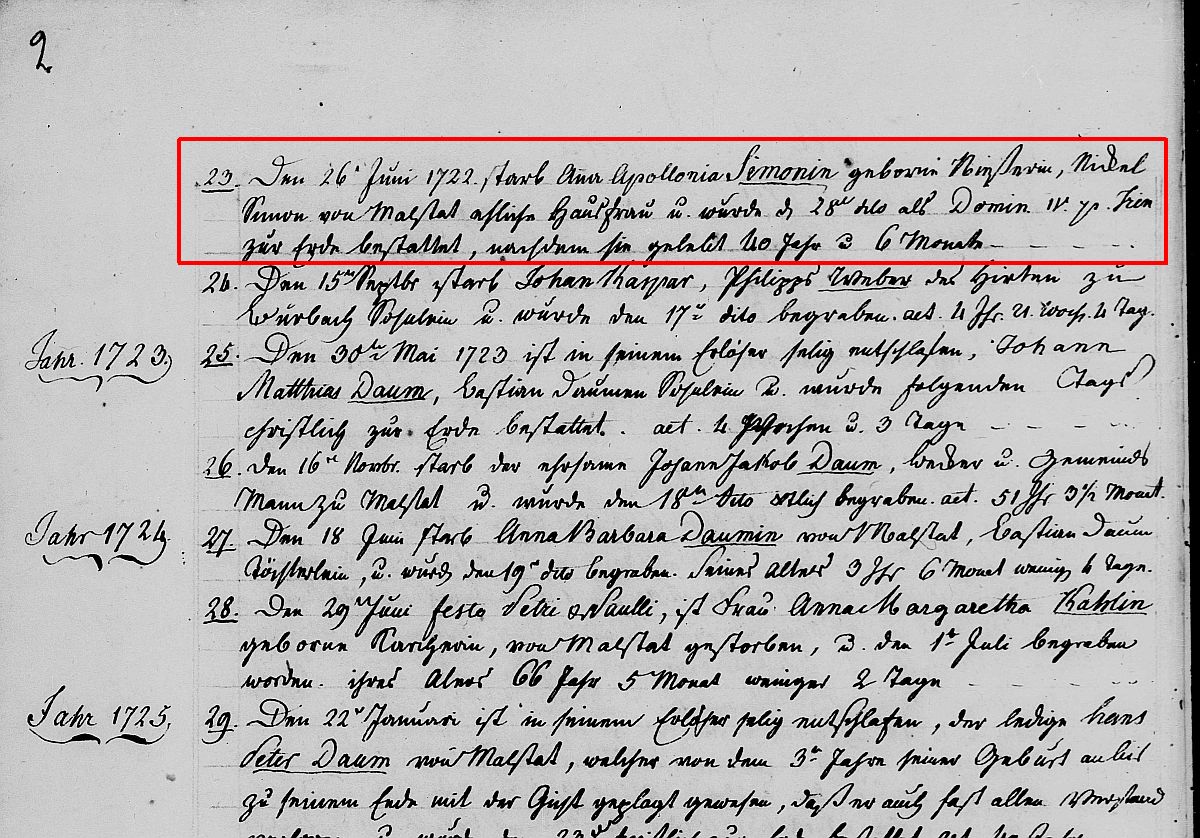 2
23. Den 26t Juni 1722. starb Anna Apollonia Simonin geborne Nickel
Simon von Malstat ehliche Hausfrau u. wurde d 28t dito als Domin. IV. p. Trin
zur Erde bestattet, nachdem sie gelebet 40 Jahr u 6 Monate
24. Den 15ten Septbr starb Johan Kaspar, Philipps Weber des Hirten zu
Burbach Söhnlein u. wurde den 17t dito begraben. aet. 4 Jhr. 21. Woch. 4 Tag.
Jahr. 1723.
25. Den 30ten Mai 1723 ist in seinem Erlöser selig entschlafen, Johann
Matthias Daum, Bastian Daumen Söhnlein u. wurde folgenden Tags
christlich zur Erde bestattet. aet. 4 Wochen u. 3 Tage
26. den 16ten Novbr. starb der ehrsame Johann Jakob Daum, Becker u. Gemeinds
Mann zu Malstat u. wurde den 18ten dito begraben. aet. 51 Jhr 3 1/2 Monat.
Jahr 1724.
27. Den 18 Juni starb Anna Barbara Daumin von Malstat, Bastian Daum
Töchterlein, u. wurd den 19t dito begraben. Seines Alters 3 Jhr 6 Monet wenig 6 Tage.
28. Den 29t Juni festo Petri & Paulli, ist Frau Anna Margaretha Kahlin
geborne Karcherin, von Malstat gestorben, u. den 1t Juli begraben
worden. ihres Alters 66 Jahr 5 Monat weniger 2 Tage
Jahr 1725.
29. Den 22t Januari ist in seinem Erlöser selig entschlafen, der ledige Hans
Peter Daum von Malstat, welcher von dem 3t Jahre seiner Geburt an bis
zu seinem Ende mit der Gicht geplagt gewesen, daß er auch fast allen Verstand